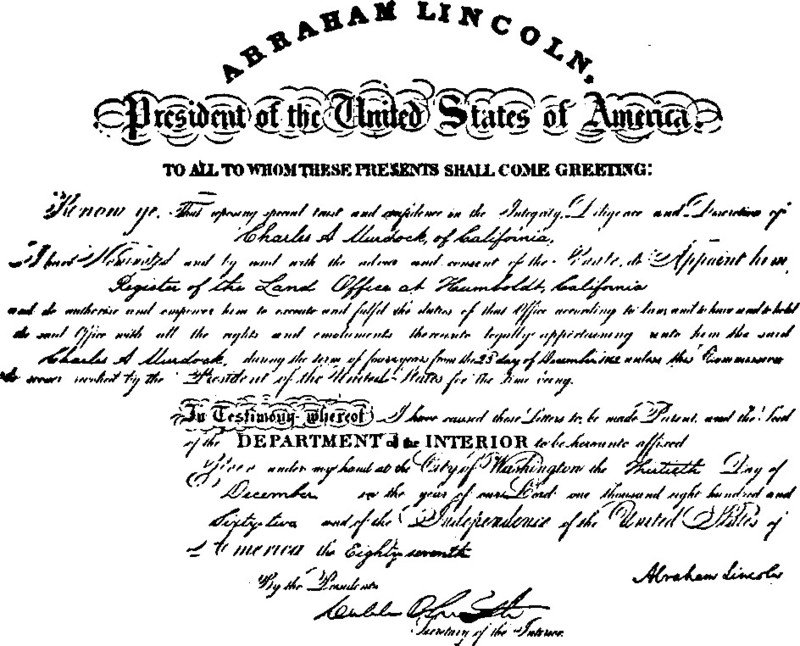 ABRAHAM LINCOLN,
President of the United States of America.
TO ALL TO WHOM THESE PRESENTS SHALL COME GREETING:
Know ye, That reposing special trust and confidence in the Integrity, Diligence and Discretion of
Charles A Murdock, of California,
I have Nominated and by and with the advice and consent of the Senate, do Appoint him
Register of the Land Office at Humboldt, California
and do authorize and empower him to execute and fulfil the duties of that Office according to law, and to have and to hold
the said Office with all the rights and emoluments thereunto legally appertaining unto him the said
Charles A Murdock, during the term of four years from the 23d day of December 1862 unless this Commission
be sooner revoked by the President of the United States for the time being.
In Testimony whereof I have caused these Letters to be made Patent, and the Seal
of the DEPARTMENT of the INTERIOR to be hereunto affixed
Given under my hand at the City of Washington the Thirtieth Day of
December in the year of our Lord one thousand eight hundred and
Sixty two and of the Independence of the United States of
America the Eighty seventh
By the President
Abraham Lincoln
Secretary of the Interior.